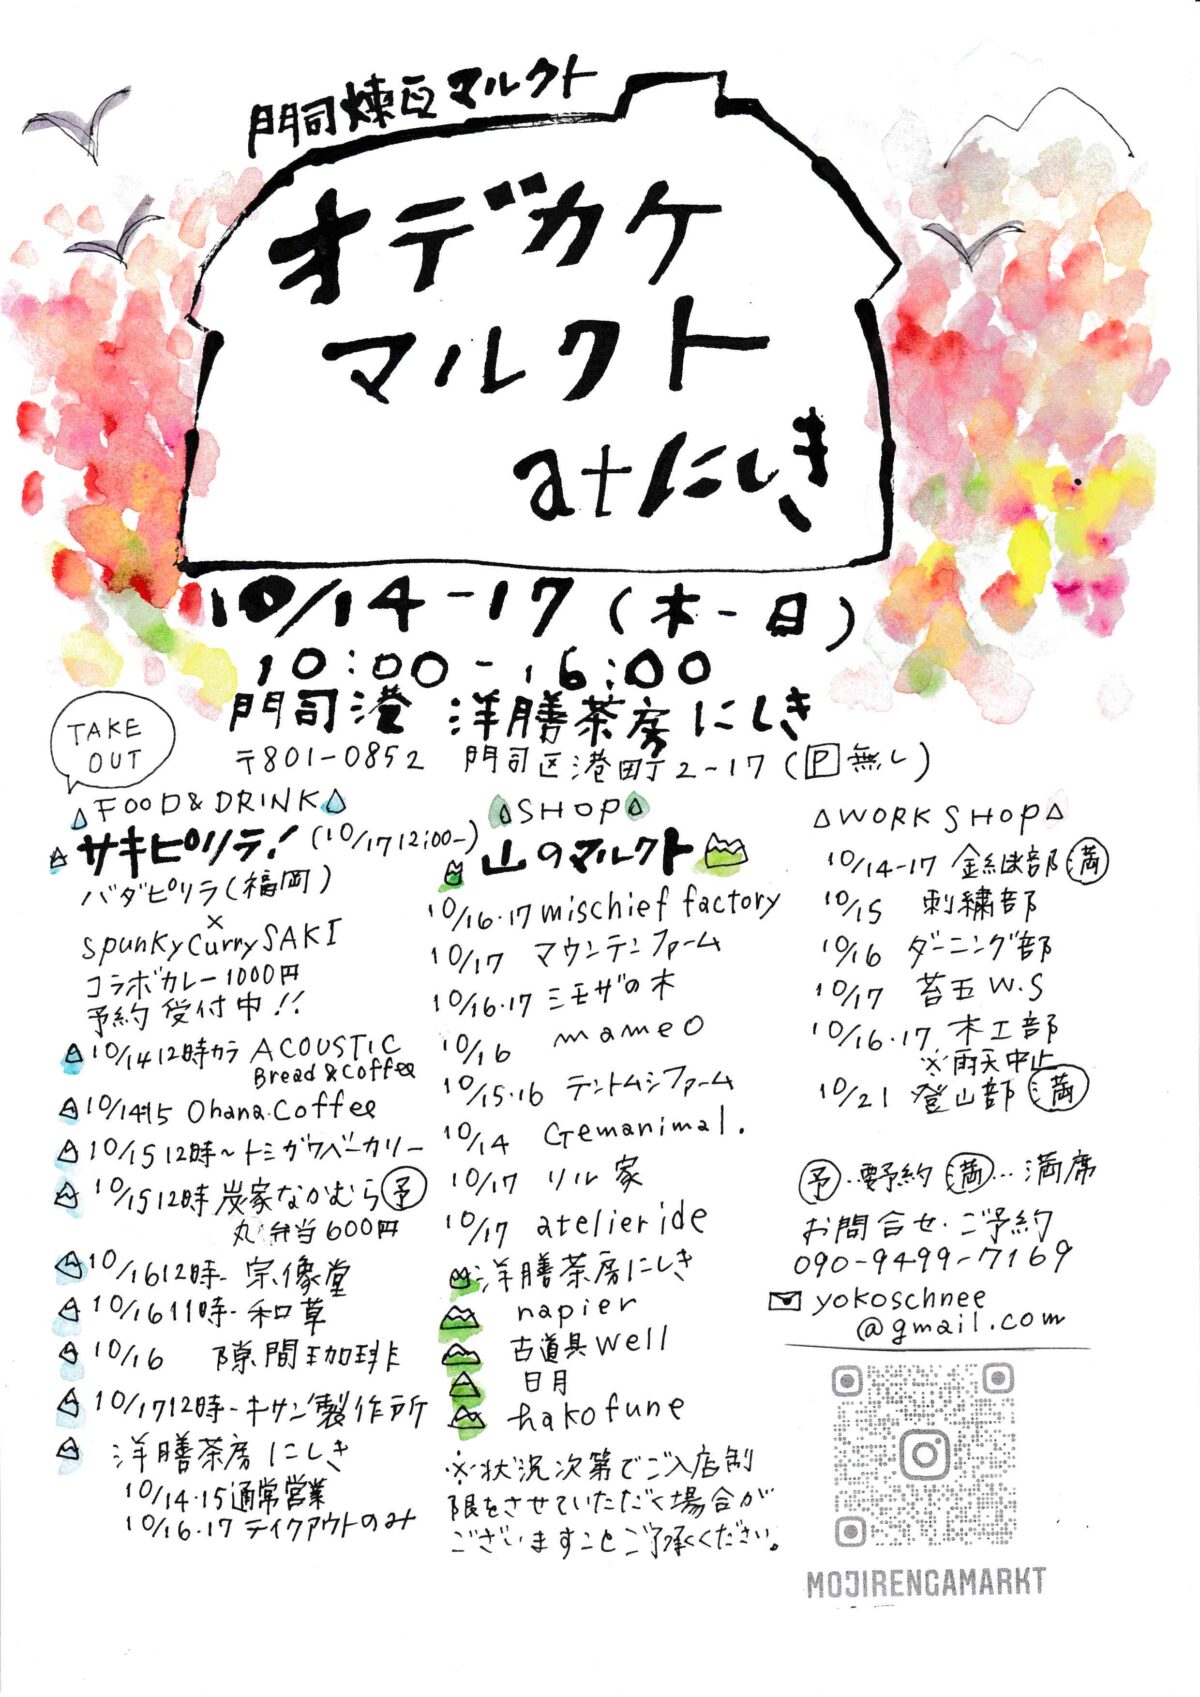 門司煉瓦マルクト
オデカケ
マルクト
atにしき
10/14-17(木-日)
10:00-16:00
門司港 洋膳茶房にしき
〒801-0852 門司区港町2-17(P無し)
TAKE
OUT
FOOD&DRINK
サキピリテ!(10/17 12:00-)
バダピリラ(福岡)
×
SpunkyCurrySAKI
コラボカレー1000円
予約受付中!!
10/14 12時カラ ACOUSTIC
Bread&Coffee
10/14・15 Ohana.Coffee
10/15 12時~トミガワベーカリー
10/15 12時 炭家なかむら 予
丸弁当600円
10/16 12時- 宗像堂
10/16 11時- 和草
10/16 隙間珈琲
10/17 12時-キサゴ製作所
洋膳茶房にしき
10/14・15通常営業
10/16・17 テイクアウトのみ
SHOP
山のマルクト
10/16・17 mischief factory
10/17 マウンテンファーム
10/16・17 ミモザの木
10/16 mameo
10/15・16 テントムシファーム
10/14 Gemanimal.
10/17 リル家
10/17 atelieride
洋膳茶房にしき
napier
古道具well
日月
hakofune
※状況次第でご入店制
限をさせていただく場合が
ございますことご了承ください。
WORKSHOP
10/14-17 金継部 満
10/15 刺繍部
10/16 ダーニング部
10/17 苔玉W.S
10/16・17 木工部
※雨天中止
10/21 登山部 満
予…要予約 満…満席
お問合せ・ご予約
090-9499-7169
yokoschnee
@gmail.com
MOJIRENGAMARKT